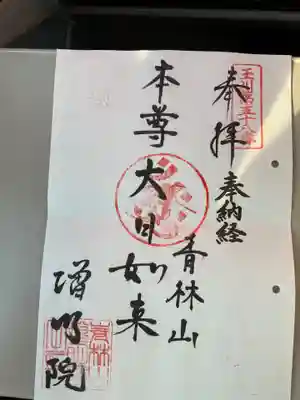 奉拝
奉納経
本尊大日如来
青林山
増明院